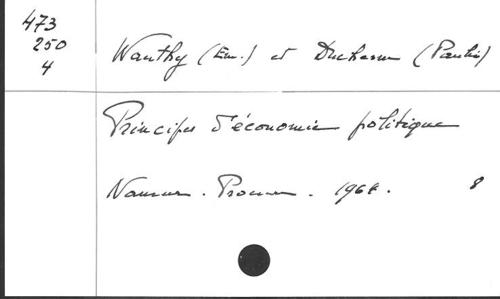 473
250
4
Wauthy (Em.) et Duchesne (Paulin)
Principes d'économie politique
Namur. 8